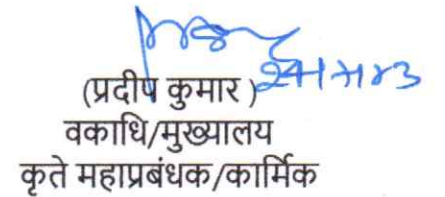 (प्रदीप कुमार )
वकाधि/मुख्यालय
कृते महाप्रबंधक/कार्मिक